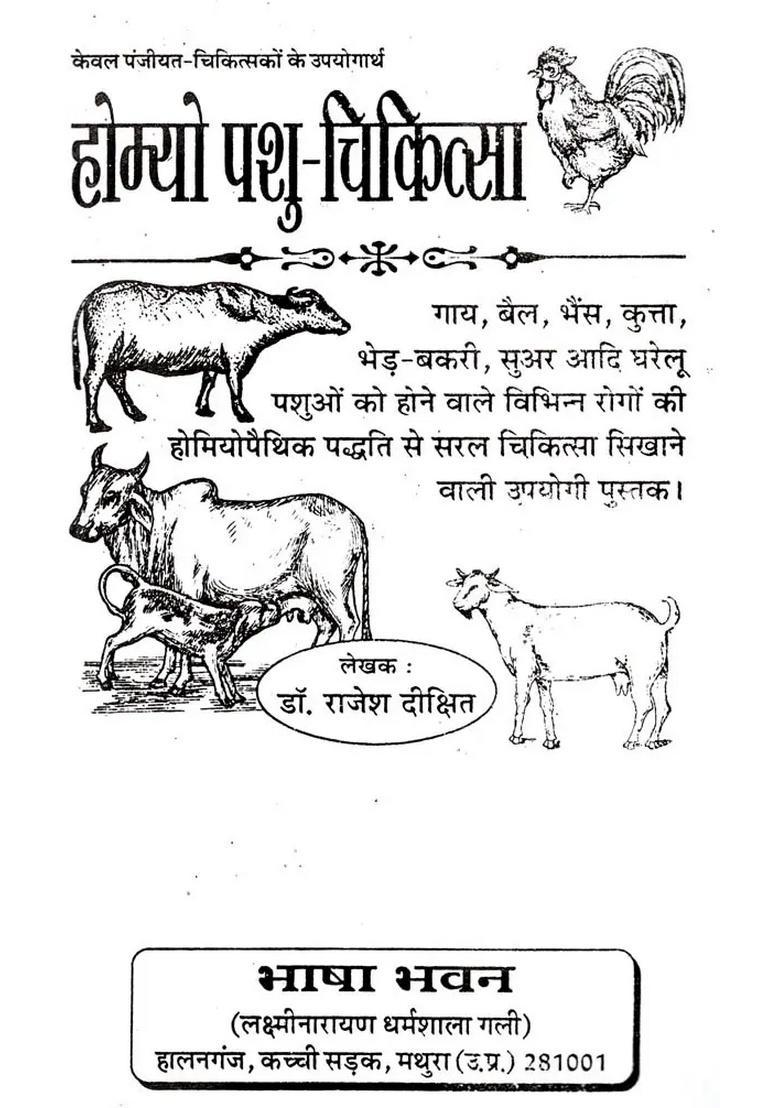 केवल पंजीयत-चिकित्सकों के उपयोगार्थ
होम्यो पशु-चिकित्सा
गाय, बैल, भैंस, कुत्ता,
भेड़-बकरी, सुअर आदि घरेलू
पशुओं को होने वाले विभिन्न रोगों की
होमियोपैथिक पद्धति से सरल चिकित्सा सिखाने
वाली उपयोगी पुस्तक।
लेखक :
डॉ. राजेश दीक्षित
भाषा भवन
(लक्ष्मीनारायण धर्मशाला गली)
हालनगंज, कच्ची सड़क, मथुरा (उ.प्र.) 281001